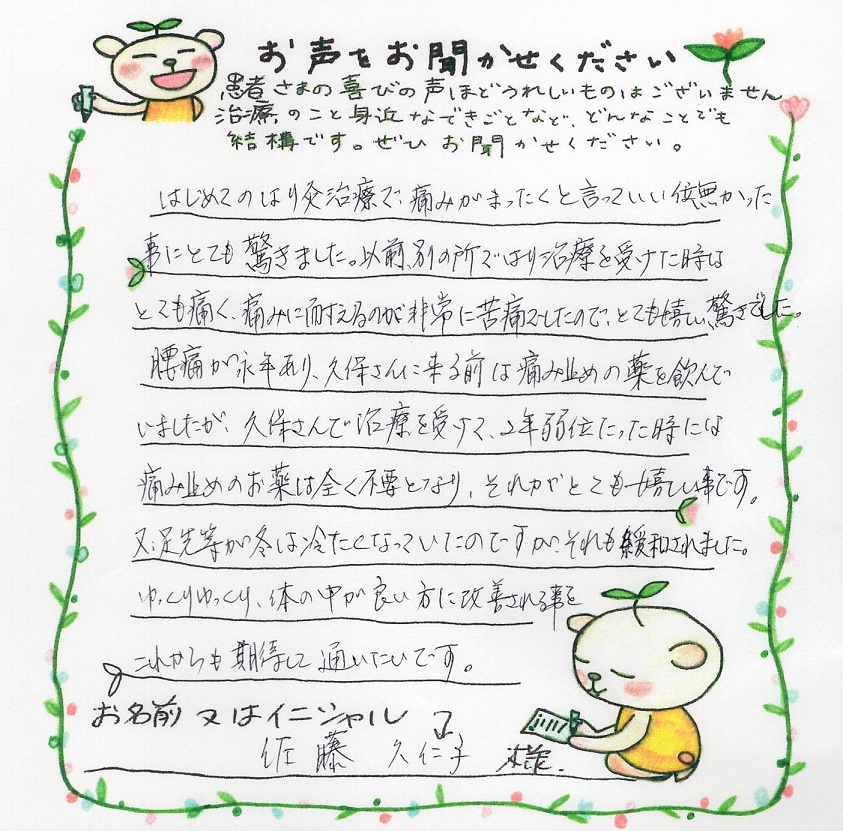 お声をお聞かせください
患者さまの喜びの声ほどうれしいものはございません
治療のこと身近なできごとなど、どんなことでも
結構です。ぜひお聞かせください。
はじめてのはり灸治療で、痛みがまったくと言っていい位無かった
事にとても驚きました。以前、別の所ではり治療を受けた時は
とても痛く、痛みに耐えるのが非常に苦痛でしたので、とても嬉しい驚きでした。
腰痛が永年あり、久保さんに来る前は痛み止めの薬を飲んで
いましたが、久保さんで治療を受けて、2年弱位たった時には
痛み止めのお薬は全く不要となり、それがとても嬉しい事です。
又、足先等が冬は冷たくなっていたのですが、それも緩和されました。
ゆっくりゆっくり、体の中が良い方に改善される事を
これからも期待して通いたいです。
お名前又はイニシャル
佐藤 久仁子 様